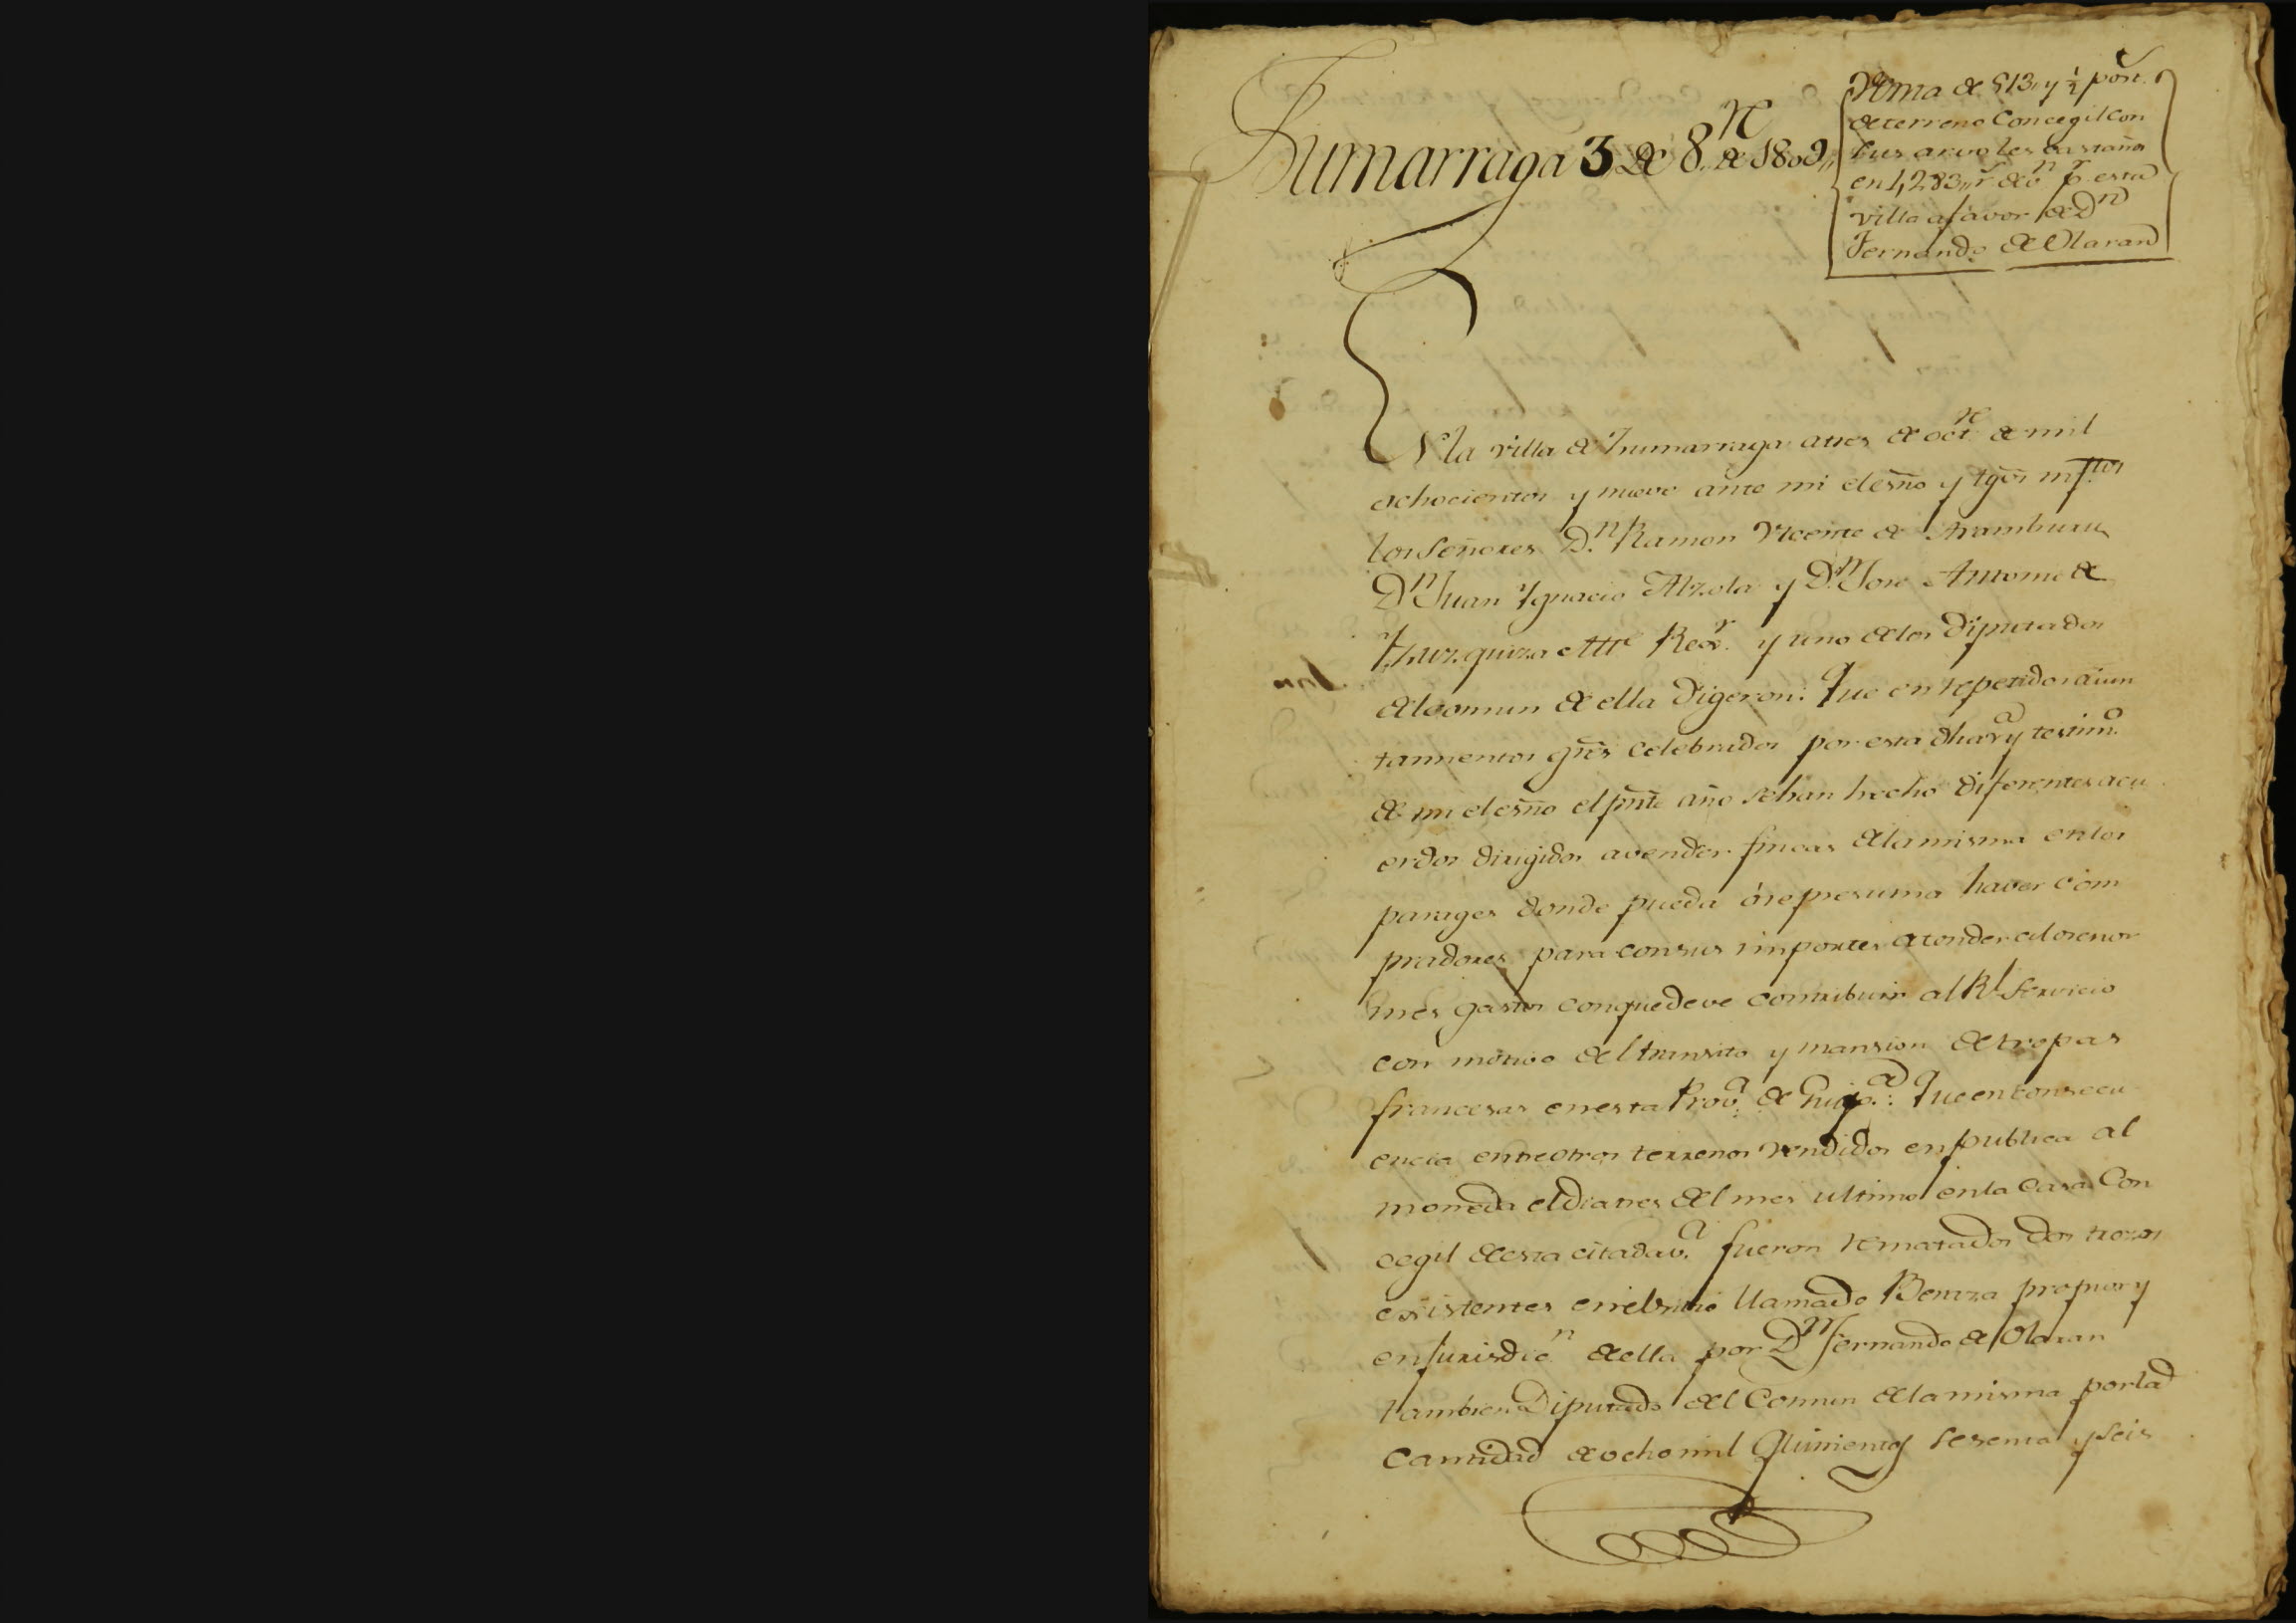 Zumarraga 3 de 8.re de 1809,,
Venta de 513,, y ½ post.s
de terreno Concegil con
sus arvoles castaños
en 1,283,, r.s de v.n p.r esta
villa a favor de D.n
Fernando de Olaran
En la villa de Zumarraga a tres de oct.re de mil
ochocientos y nueve ante mi el esño y tgõs
los Señores D.n Ramon Vicente de Aramburu,
D.n Juan Ygnacio Alzola y D.n Jose Antonio de
Yzuzquiza Alc.e Rex.r y uno de los Diputados
del comun de ella Digeron: Que en repetidos aiun
tamientos grẽs celebrados por esta dha v.a y testim.o
de mi el esño el pñte año se han hecho diferentes acu
erdos dirigidos a vender fincas de la misma en los
parages donde pueda ó se presuma haver com
pradores para con sus importes atender a los enor
mes gastos con que deve contribuir al R.l Servicio
con motivo del transito y mansion de tropas
francesas en esta Prov.a de Guip.a: Que en consecu
encia entre otros terrenos vendidos en publica al
moneda el dia tres del mes ultimo en la Casa Con
cegil de esta citada v.a fueron rematados dos trozos
existentes en el sitio llamado propios y
en Jurisdic.n de ella por D.n Fernando de Olaran
tambien Diputado del Comun de la misma por la
Cantidad de ocho mil Quinientos sesenta y seis